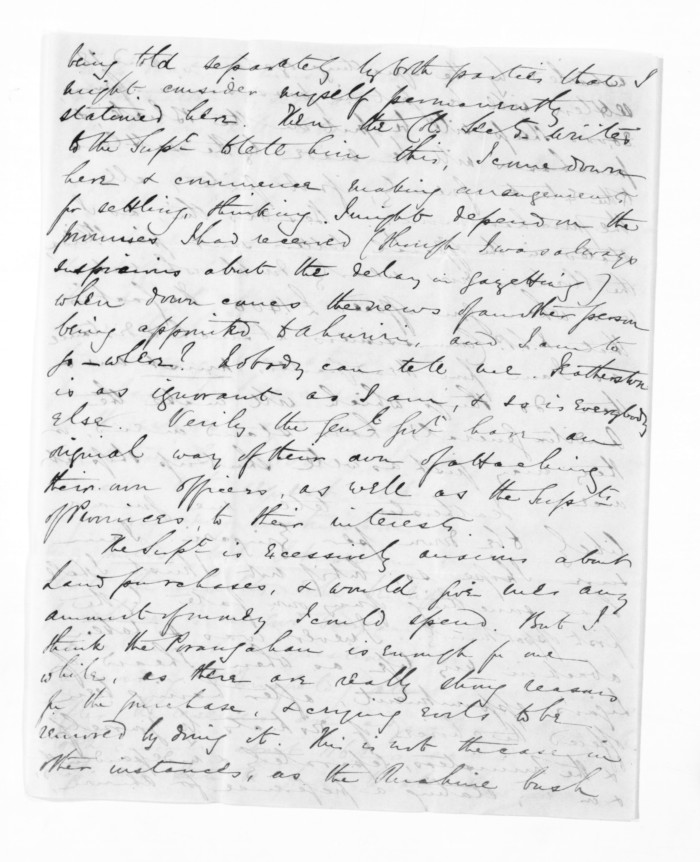 being told separately by both parties that I
might consider myself permanently
stationed here. Then the Col. Sec.y writes
to the Supt. to tell him this, I come down
here & commence making arrangements
for settling, thinking I might depend on the
promises I had received (though I was always
suspicious about the delay in gazetting)
when down comes the news of another person
being appointed to Ahuriri, and I am to
go – where? Nobody can tell me. Featherston
is as ignorant as I am, & so is Everybody
else. Verily the Genl. Govt. have an
original way of their own of attaching
their own officers, as well as the Supts.
of Provinces, to their interests.
The Supt. is excessively anxious about
Land purchases, & would give me any
amount of money I could spend. But I
think the Porangahau is enough for one
while, as there are really strong reasons
for the purchase, & crying evils to be
removed by doing it. This is not the case in
other instances, as the Ruahine bush